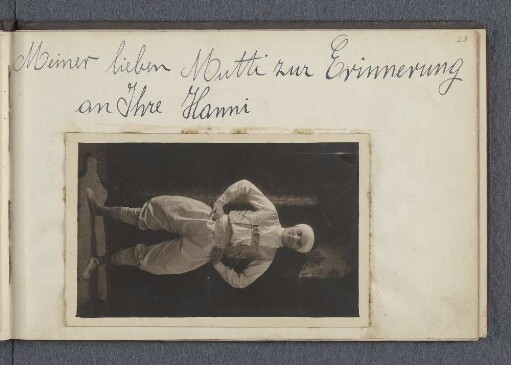 28
Meiner lieben Mutti zur Erinnerung
an Ihre Hanni